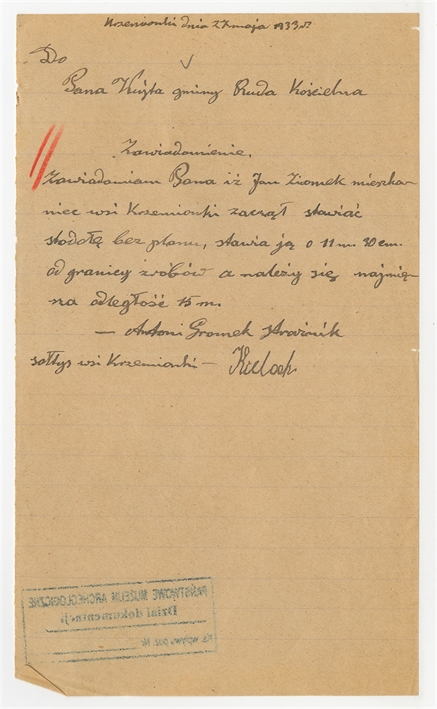 Krzemionki dnia 27 maja 1933 r.
Do
Pana Wójta gminy Ruda Kościelna
Zawiadomienie.
Zawiadamiam Pana iż Jan Ziomek mieszka-
niec wsi Krzemionki zaczął stawiać
stodołę bez planu, stawia ją o 11 m. 30 cm.
od granicy zrobów a należy się najmię-
na odległość 15 m.
— Antoni Gromek Strażnik
sołtys wsi Krzemionki —
PAŃSTWOWE MUZEUM ARCHEOLOGICZNE
Dział dokumentacji